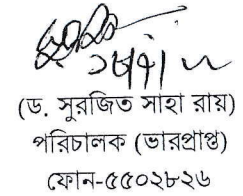 (ড. সুরজিত সাহা রায়)
পরিচালক (ভারপ্রাপ্ত)
ফোন-৫৫০২৮২৬